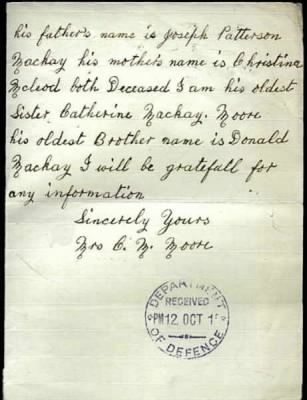 his father's name is Joseph Patterson
Mackay his mother's name is Christina
Mcleod both Deceased I am his oldest
Sister Catherine Mackay. Moore
his oldest Brother name is Donald
Mackay I will be gratefull for
any information
Sincerely Yours
Mrs C. M. Moore
DEPARTMENT
RECEIVED
PM 12 OCT 1
OF DEFENCE